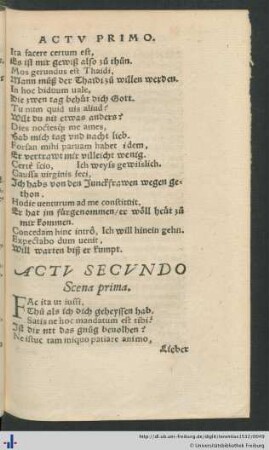 ACTV PRIMO.
Ita facere certum est,
Es ist mir gewiß also zů thůn.
Mos gerundus est Thaidi,
Mann můß der Thaidi zů willen werden.
In hoc biduum uale,
Die zwen tag behůt dich Gott.
Tu num quid uis aliud?
Wilt du nit etwas anders?
Dies noctesq; me ames,
Hab mich tag vnd nacht lieb.
Forsan mihi paruam habet idem,
Er vertrawt mir villeicht wenig.
Certè scio, Ich weyß gewißlich.
Caussa virginis feci,
Ich habs von den Junckfrawen wegen ge-
thon.
Hodie uenturum ad me constituit,
Er hat im fürgenommen/ er wöll heüt zů
mir kommen.
Concedam hinc intrò, Ich will hinein gehn.
Expectabo dum uenit,
Will warten biß er kumpt.
ACTV SECVNDO
Scena prima.
FAc ita ut iussi,
Thů als ich dich geheyssen hab.
Satis ne hoc mandatum est tibi?
Ist dir nit das gnůg beuolhen?
Ne istuc tam iniquo patiare animo,
Lieber
© Universitätsbibliothek Freiburg